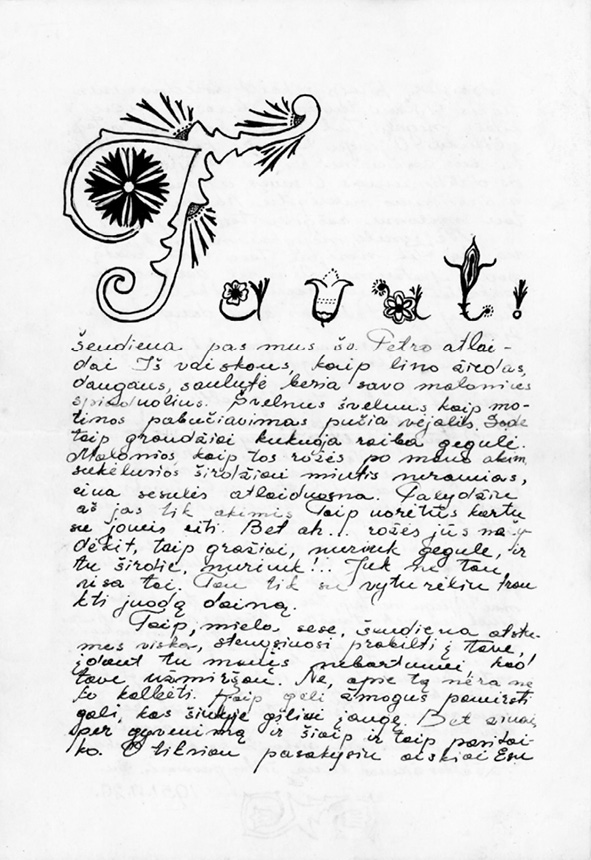 Šendiena pas mus šv. Petro atlai-
dai Iš vaiskaus, kaip lino žiedas,
dangaus, saulutė beria savo malonius
spindulius. Švelnus švelnus, kaip mo-
tinos pabučiavimas pučia vėjalis, Sode
taip graudžiai kukuoja raiba gegulė.
Malonios kaip tos rožės po mano akim
sukėlusios širdžiai mintis neramias,
eina sesulės atlaiduosna. Palydžiu
aš jas tik akimis Taip norėtūs kartu
su jomis eiti. Bet ah... rožės jūs
dėkit, taip gražiai, nurimk gegule, ir
tu širdie, nurimk!.. Juk ne tau
visa tai. Tau tik su vyturėliu trau
kti juodą dainą.
Taip, miela sese, šendiena atstu-
mus viską, stengsiuosi prabilti į tave,
jodant tu manęs nebartumei kad
tave užmiršau. Ne, apie tą nėra
ko kalbėti. Kaip gali žmogus pamiršti
gali, kas širdyje giliai įaugę. Bet žinai
per gyvenimą ir šiaip ir taip pasitai-
ko. O tikriau pasakysiu aiškiai Esu